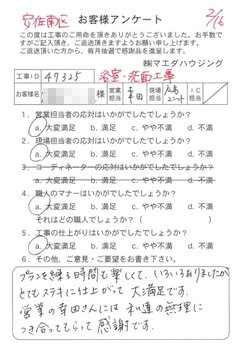 安佐南区 お客様アンケート 2/16
この度は工事のご用命を頂きありがとうございました。お手数で
すがご記入頂き、ご返送頂きますようお願い申し上げます。
ご返送頂いた方から、毎月抽選で感謝品を進呈します。
㈱マエダハウジング
工事ID 49325 浴室・洗面工事
お客様名 様 営業担当 幸田 現場担当 IC担当
1. 営業担当者の応対はいかがでしたでしょうか?
a. 大変満足 b. 満足 c. やや不満 d. 不満
2. 現場担当者の応対はいかがでしたでしょうか?
a. 大変満足 b. 満足 c. やや不満 d. 不満
3. コーディネーターの応対はいかがでしたでしょうか?
a. 大変満足 b. 満足 c. やや不満 d. 不満
4. 職人のマナーはいかがでしたでしょうか?
a. 大変満足 b. 満足 c. やや不満 d. 不満
それはどの職人でしょうか?( )
5. 工事の仕上がりはいかがでしたでしょうか?
a. 大変満足 b. 満足 c. やや不満 d. 不満
6. その他、ご意見・ご要望をお書き下さい。
プランを練る時間も楽しくて、いろいろありましたが
とてもステキに仕上がって 大満足です。
営業の幸田さんには 私達の無理に
つき合ってもらって 感謝です。